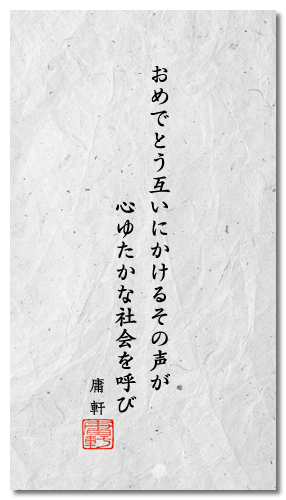 おめでとう互いにかけるその声が
心ゆたかな社会を呼び
庸軒